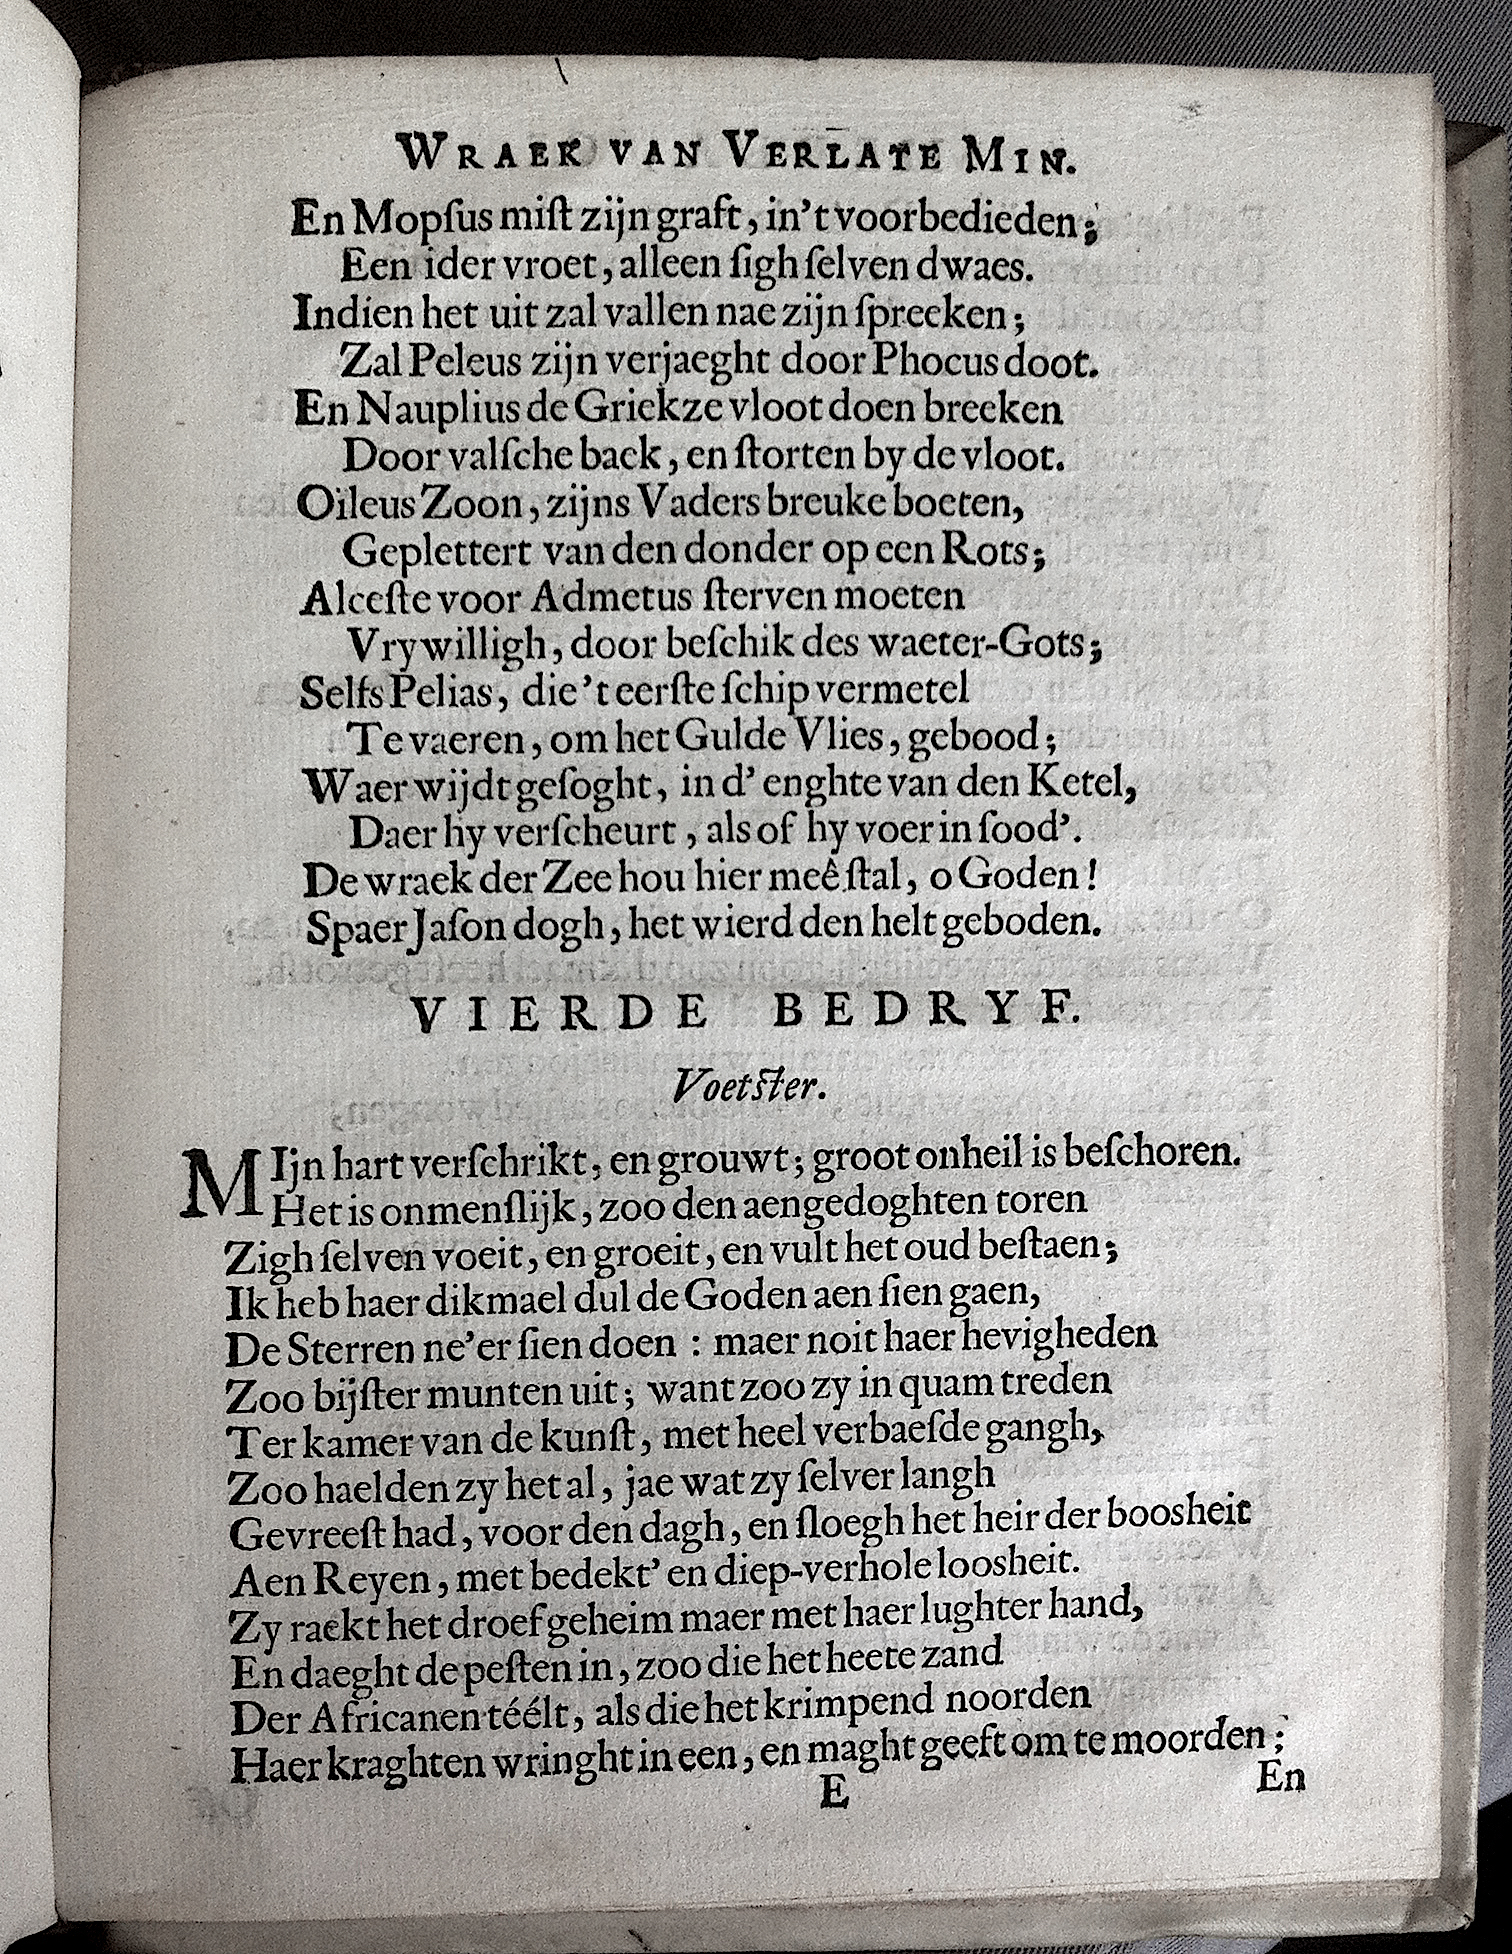 WRAEK VAN VERLATE MIN.
En Mopſus miſt zijn graft, in't voorbedieden;
Een ider vroet, alleen ſigh ſelven dwaes.
Indien het uit zal vallen nae zijn ſpreeken;
Zal Peleus zijn verjaeght door Phocus doot.
En Nauplius de Griekze vloot doen breeken
Door valſche baek, en ſtorten by de vloot.
Oileus Zoon, zijns Vaders breuke boeten,
Geplettert van den donder op een Rots;
Alceſte voor Admetus ſterven moeten
Vrywilligh, door beſchik des waeter-Gots;
Selfs Pelias, die 't eerſte ſchip vermetel
Te vaeren, om het Gulde Vlies, gebood;
Waer wijdt geſoght, in d' enghte van den Ketel,
Daer hy verſcheurt, als of hy voer in ſood'.
De wraek der Zee hou hier meê ſtal, o Goden!
Spaer Jaſon dogh, het wierd den helt geboden.
VIERDE BEDRYF.
Voetſter.
MIjn hart verſchrikt, en grouwt; groot onheil is beſchoren.
Het is onmenſlijk, zoo den aengedoghten toren
Zigh ſelven voeit, en groeit, en vult het oud beſtaen;
Ik heb haer dikmael dul de Goden aen ſien gaen,
De Sterren ne'er ſien doen : maer noit haer hevigheden
Zoo bijſter munten uit; want zoo zy in quam treden
Ter kamer van de kunſt, met heel verbaeſde gangh,
Zoo haelden zy het al, jae wat zy ſelver langh
Gevreeſt had, voor den dagh, en ſloegh het heir der boosheit
Aen Reyen, met bedekt' en diep-verhole loosheit.
Zy raekt het droef geheim maer met haer lughter hand,
En daeght de peſten in, zoo die het heete zand
Der Africanen téélt, als die het krimpend noorden
Haer kraghten wringht in een, en maght geeft om te moorden;
E
En